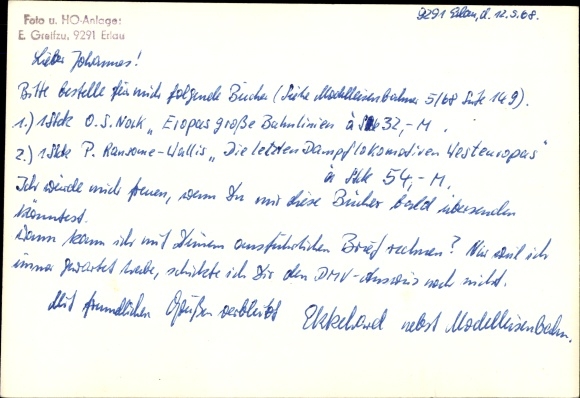 Foto u. HO-Anlage:
E. Greifzu, 9291 Erlau
9291 Erlau, d. 12.5.68.
Lieber Johannes!
Bitte bestelle für mich folgende Bücher (siehe Modelleisenbahner 5/68 Seite 149).
1.) 1 Stck O.S. Nock „Eropas große Bahnlinien à Stck 32,-M.
2.) 1 Stck P. Ransome-Wallis „Die letzten Dampflokomotiven Westeuropas"
à Stck 54,-M.
Ich würde mich freuen, wenn Du mir diese Bücher bald übersenden
könntest.
Wann kann ich mit Deinem ausführlichen Brief rechnen? Nur weil ich
immer gewartet habe, schickte ich Dir den DMV-Ausweis noch nicht.
Mit freundlichen Grüßen verbleibt Ekkehard nebst Modelleisenbahn.